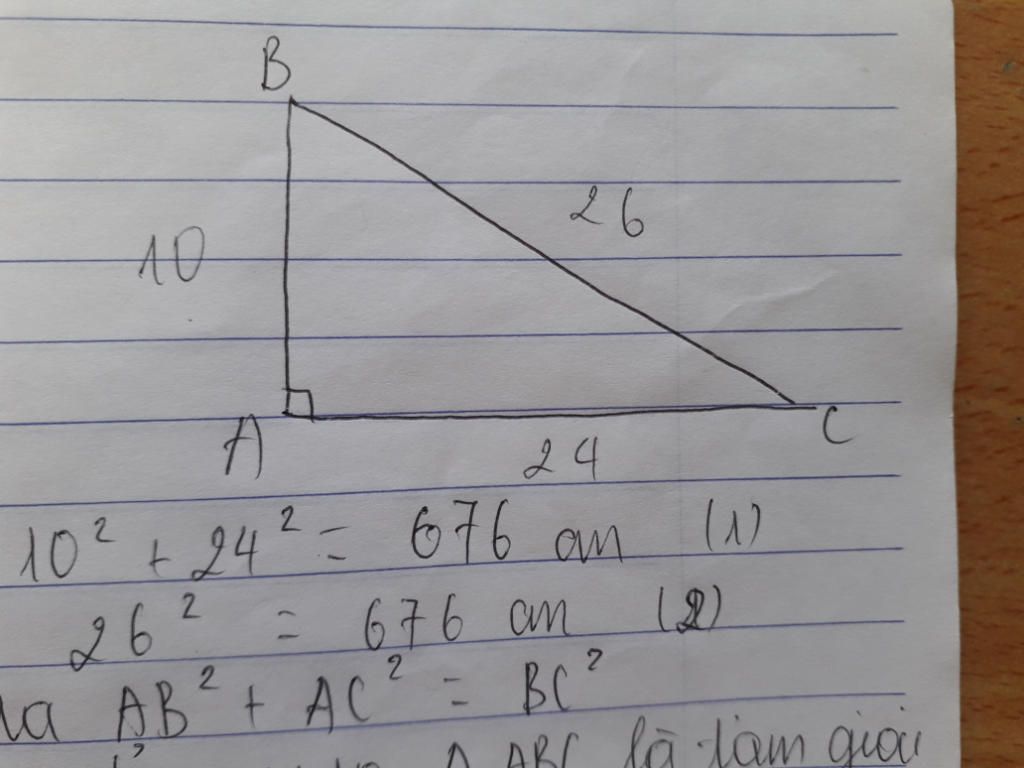 B
26
10
A
C
24
10² + 24² = 676 cm (1)
26² = 676 cm (2)
AB² + AC² = BC²
Δ ABC là tam giác